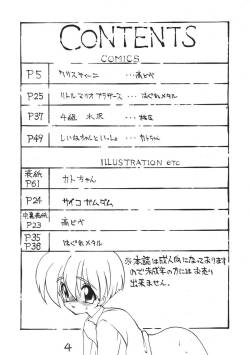 CONTENTS
COMICS
P.5 クリスティーニ …高ピや
P.25 リトルマリオブラザーズ …はぐれメタル
P.37 4級
P.49 しいねちゃんといっしょ …カトちゃん
ILLUSTRATION etc
表紙
P61 カトちゃん
P.24 サイコ ガンダム
P.23 高ピや
P.35
P.38 はぐれメタル
※本誌は成人向になっております
ので未成年の方にはお売り
出来ません。
4